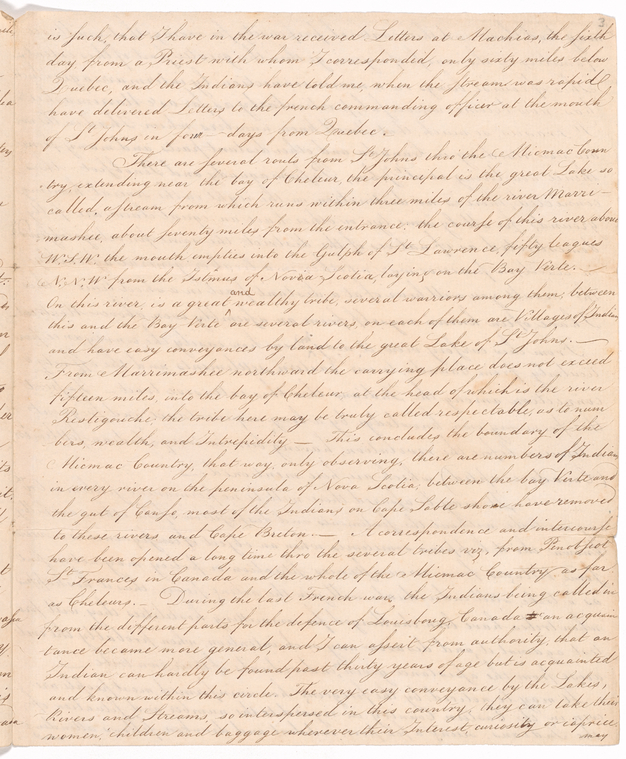 3
is such, that I have in the war received Letters at Machias, the sixth
day from a Priest with whom I corresponded, only sixty miles below
Quebec, and the Indians have told me, when the stream was rapid
have delivered Letters to the french commanding officer at the mouth
of St Johns in four days from Quebec.
There are several routs from St Johns thro the Micmac Coun
try, extending near the bay of Cheleur, the principal is the great Lake so
called, a stream from which runs within three miles of the river Marri-
mashee, about seventy miles from the entrance; the course of this river about
W.S.W. the mouth empties into the Gulph of St Lawrence, fifty leagues
N:N:W from the Istmus of Novia Scotia, laying on the Bay Virte.
On this river, is a great and wealthy tribe, several warriors among them, between
this and the Bay Virte are several rivers, on each of them are Villages of Indian
and have easy conveyances by land to the great Lake of St Johns.—
From Marrimashee northward the carrying place does not exceed
fifteen miles, into the bay of Cheleur, at the head of which is the river
Restigouche, the tribe here may be truly called respectable, as to num
bers, wealth, and Intrepidity — This concludes the boundary of the
Micmac Country, that way, only observing, there are numbers of Indian
in every river on the peninsula of Nova Scotia, between the bay Virte and
the gut of Canso, most of the Indians on Cape Sable shore have removed
to these rivers and Cape Breton.— A correspondence and intercourse
have been opened a long time thro the several trebes viz, from Penobscot
St Frances in Canada and the whole of the Micmac Country, as far
as Cheleurs.— During the last French war, the Indians being called in
from the different parts for the defence of Louisbourg, Canada an acquain
tance became more general, and I can assert from authority, that an
Indian can hardly be found past thirty years of age but is acquainted
and known within this circle. The very easy conveyance by the Lakes,
Rivers and Streams, so interspersed in this country, they can take their
women, children and baggage wherever their Interest, curiosity or caprice
may